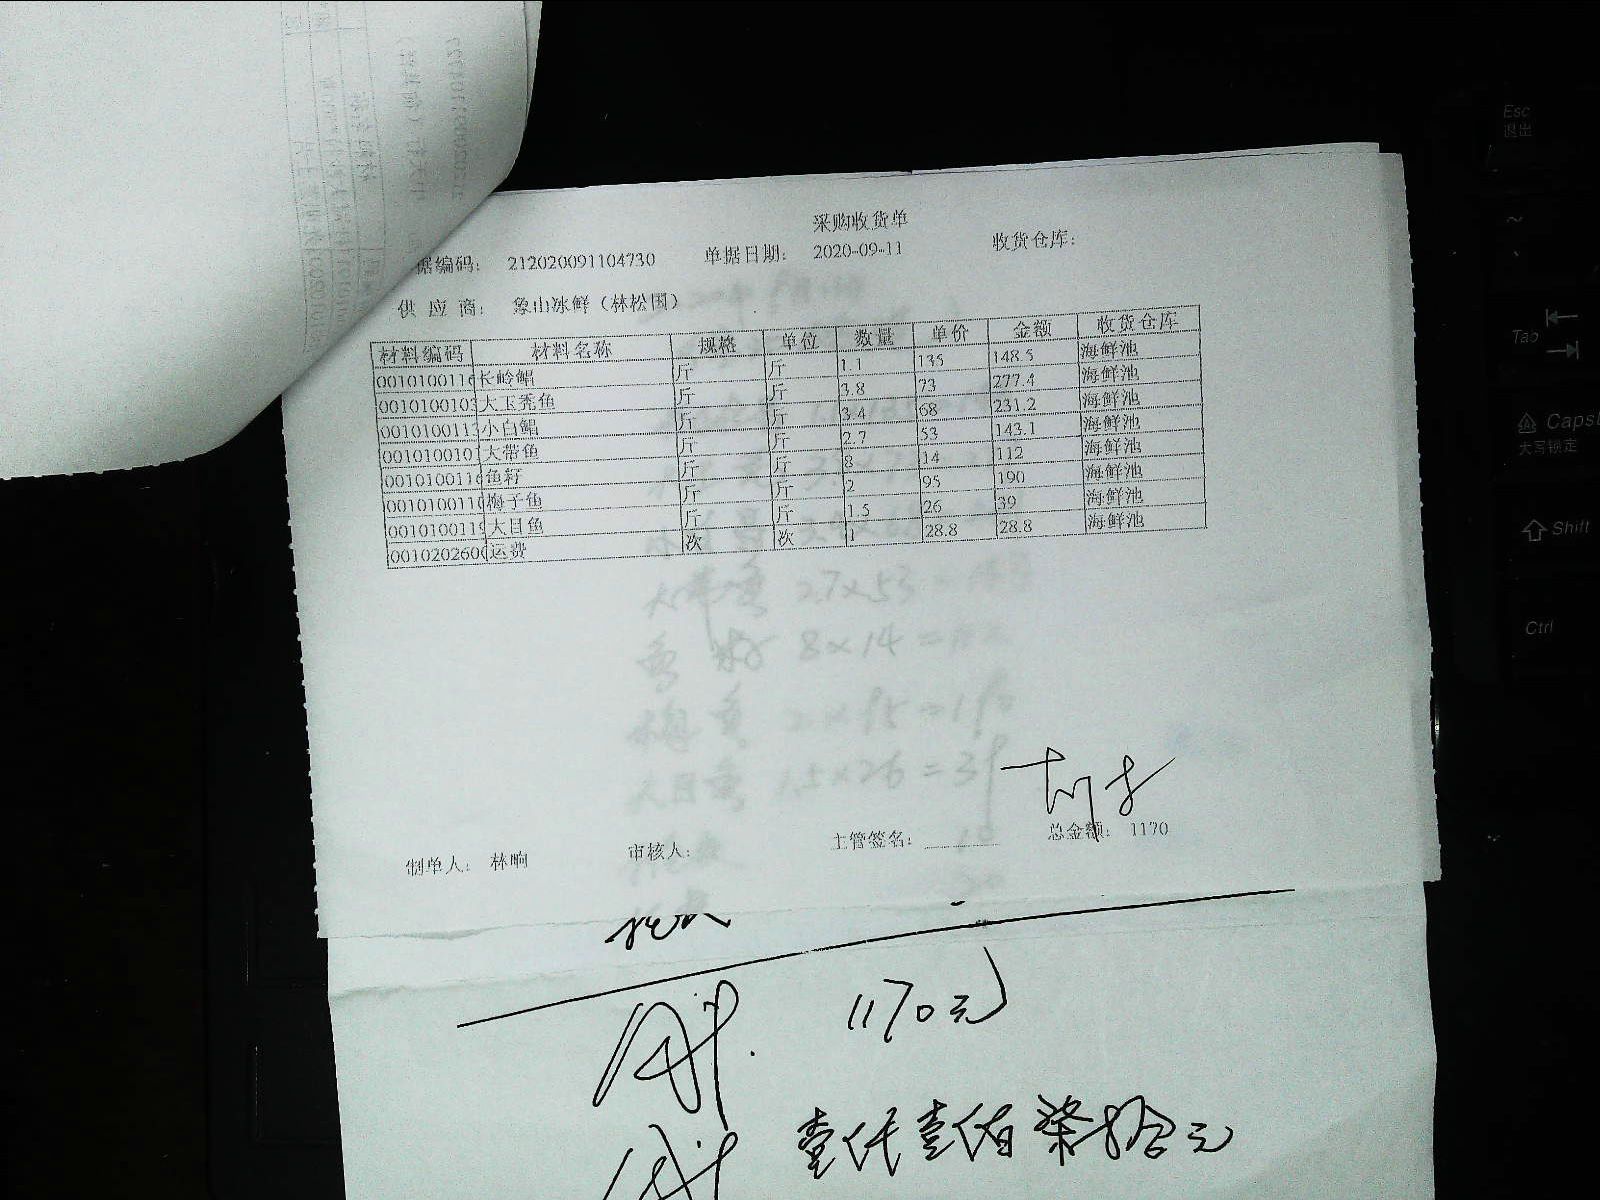 采购收货单
据编码： 212020091104730 单据日期： 2020-09-11 收货仓库：
供 应 商： 象山冰鲜（林松国）
材料编码 材料名称 规格 单位 数量 单价 金额 收货仓库
001010011 长岭鲳 斤 斤 1.1 135 148.5 海鲜池
001010010 大玉秃鱼 斤 斤 3.8 73 277.4 海鲜池
001010011 小白鲳 斤 斤 3.4 68 231.2 海鲜池
001010010 大带鱼 斤 斤 2.7 53 143.1 海鲜池
001010011 鱼籽 斤 斤 8 14 112 海鲜池
001010011 梅子鱼 斤 斤 2 95 190 海鲜池
001010011 大目鱼 斤 斤 1.5 26 39 海鲜池
001020260 运费 次 次 1 28.8 28.8 海鲜池
大带鱼 2.7×53=
鱼籽 8×14=
梅鱼 2×95=190
大目鱼 1.5×26=39
制单人： 林晌 审核人： 主管签名： 总金额： 1170
1170元
壹仟壹佰柒拾元
Esc
退出
~
Tab
Caps
大写锁定
Shift
Ctrl